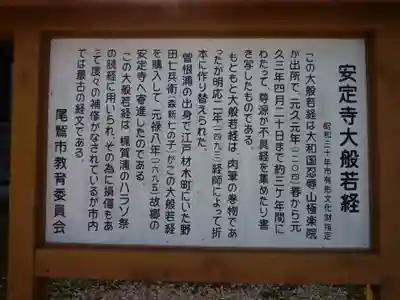 安定寺大般若経
昭和三十年市有形文化財指定
この大般若経は大和国忍辱山極楽院
が出所で、元久元年(一二〇四)春から元
久三年四月二十日まで約三ヶ年間に
わたって、尊源が不具経を集めたり書
き写したものである。
もともと大般若経は、肉筆の巻物であ
ったが明応二年(一四九三)経師によって折
本に作り替えられた。
曽根浦の出身で江戸材木町にいた野
田七兵衛(森新七の子)がこの大般若経
を購入して元禄八年(一六九五)故郷の
安定寺へ寄進したのである。
この大般若経は、梶賀浦のハラソ祭
の読経に用いられ、その為に損傷もあ
って度々の補修がなされているが市内
では最古の経文である。
尾鷲市教育委員会